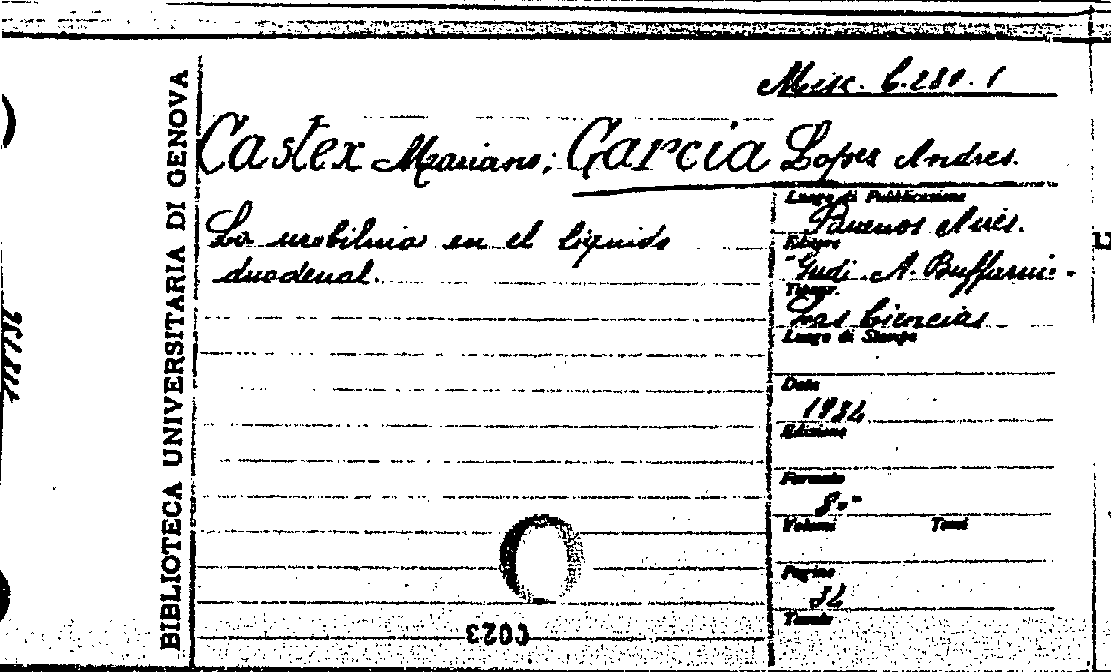 BIBLIOTECA UNIVERSITARIA DI GENOVA
Misc. b.280.1
Castex Mariano; Garcia Lopez Andres.
La urobilina en el liquido
duodenal.
Luogo di Pubblicazione
Buenos Aires.
"Gudi A. Buffarini -
Tipogr.
Las Ciencias
Luogo di Stampa
Data
1932
Edizione
Formato
8°
Volumi Tomi
Pagine
32
Tavole
0023